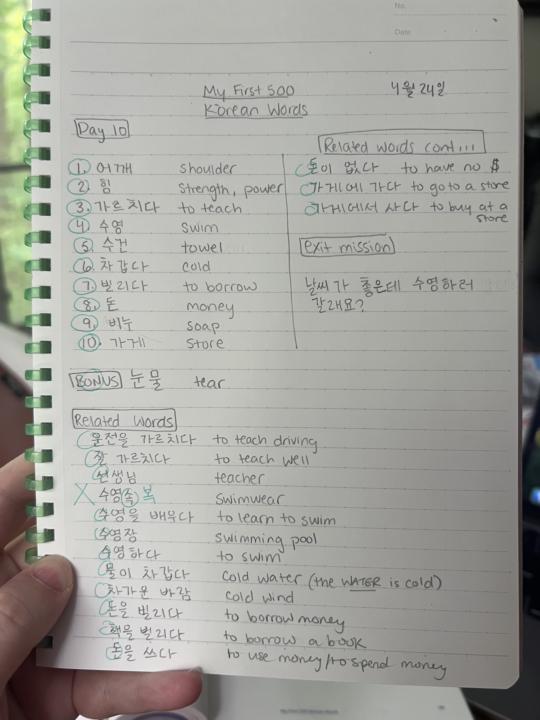 No.
Date
My First 500
Korean Words
4월 24일
Day 10
1. 어깨 shoulder
2. 힘 strength, power
3. 가르치다 to teach
4. 수영 swim
5. 수건 towel
6. 차갑다 cold
7. 빌리다 to borrow
8. 돈 money
9. 비누 soap
10. 가게 store
BONUS 눈물 tear
Related words
운전을 가르치다 to teach driving
잘 가르치다 to teach well
선생님 teacher
X 수영족 복 swimwear
수영을 배우다 to learn to swim
수영장 swimming pool
수영하다 to swim
물이 차갑다 cold water (the WATER is cold)
차가운 바람 cold wind
돈을 빌리다 to borrow money
책을 빌리다 to borrow a book
돈을 쓰다 to use money/to spend money
Related words cont...
돈이 없다 to have no $
가게에 가다 to go to a store
가게에서 사다 to buy at a
store
exit mission
날씨가 좋은데 수영하러
갈래요?